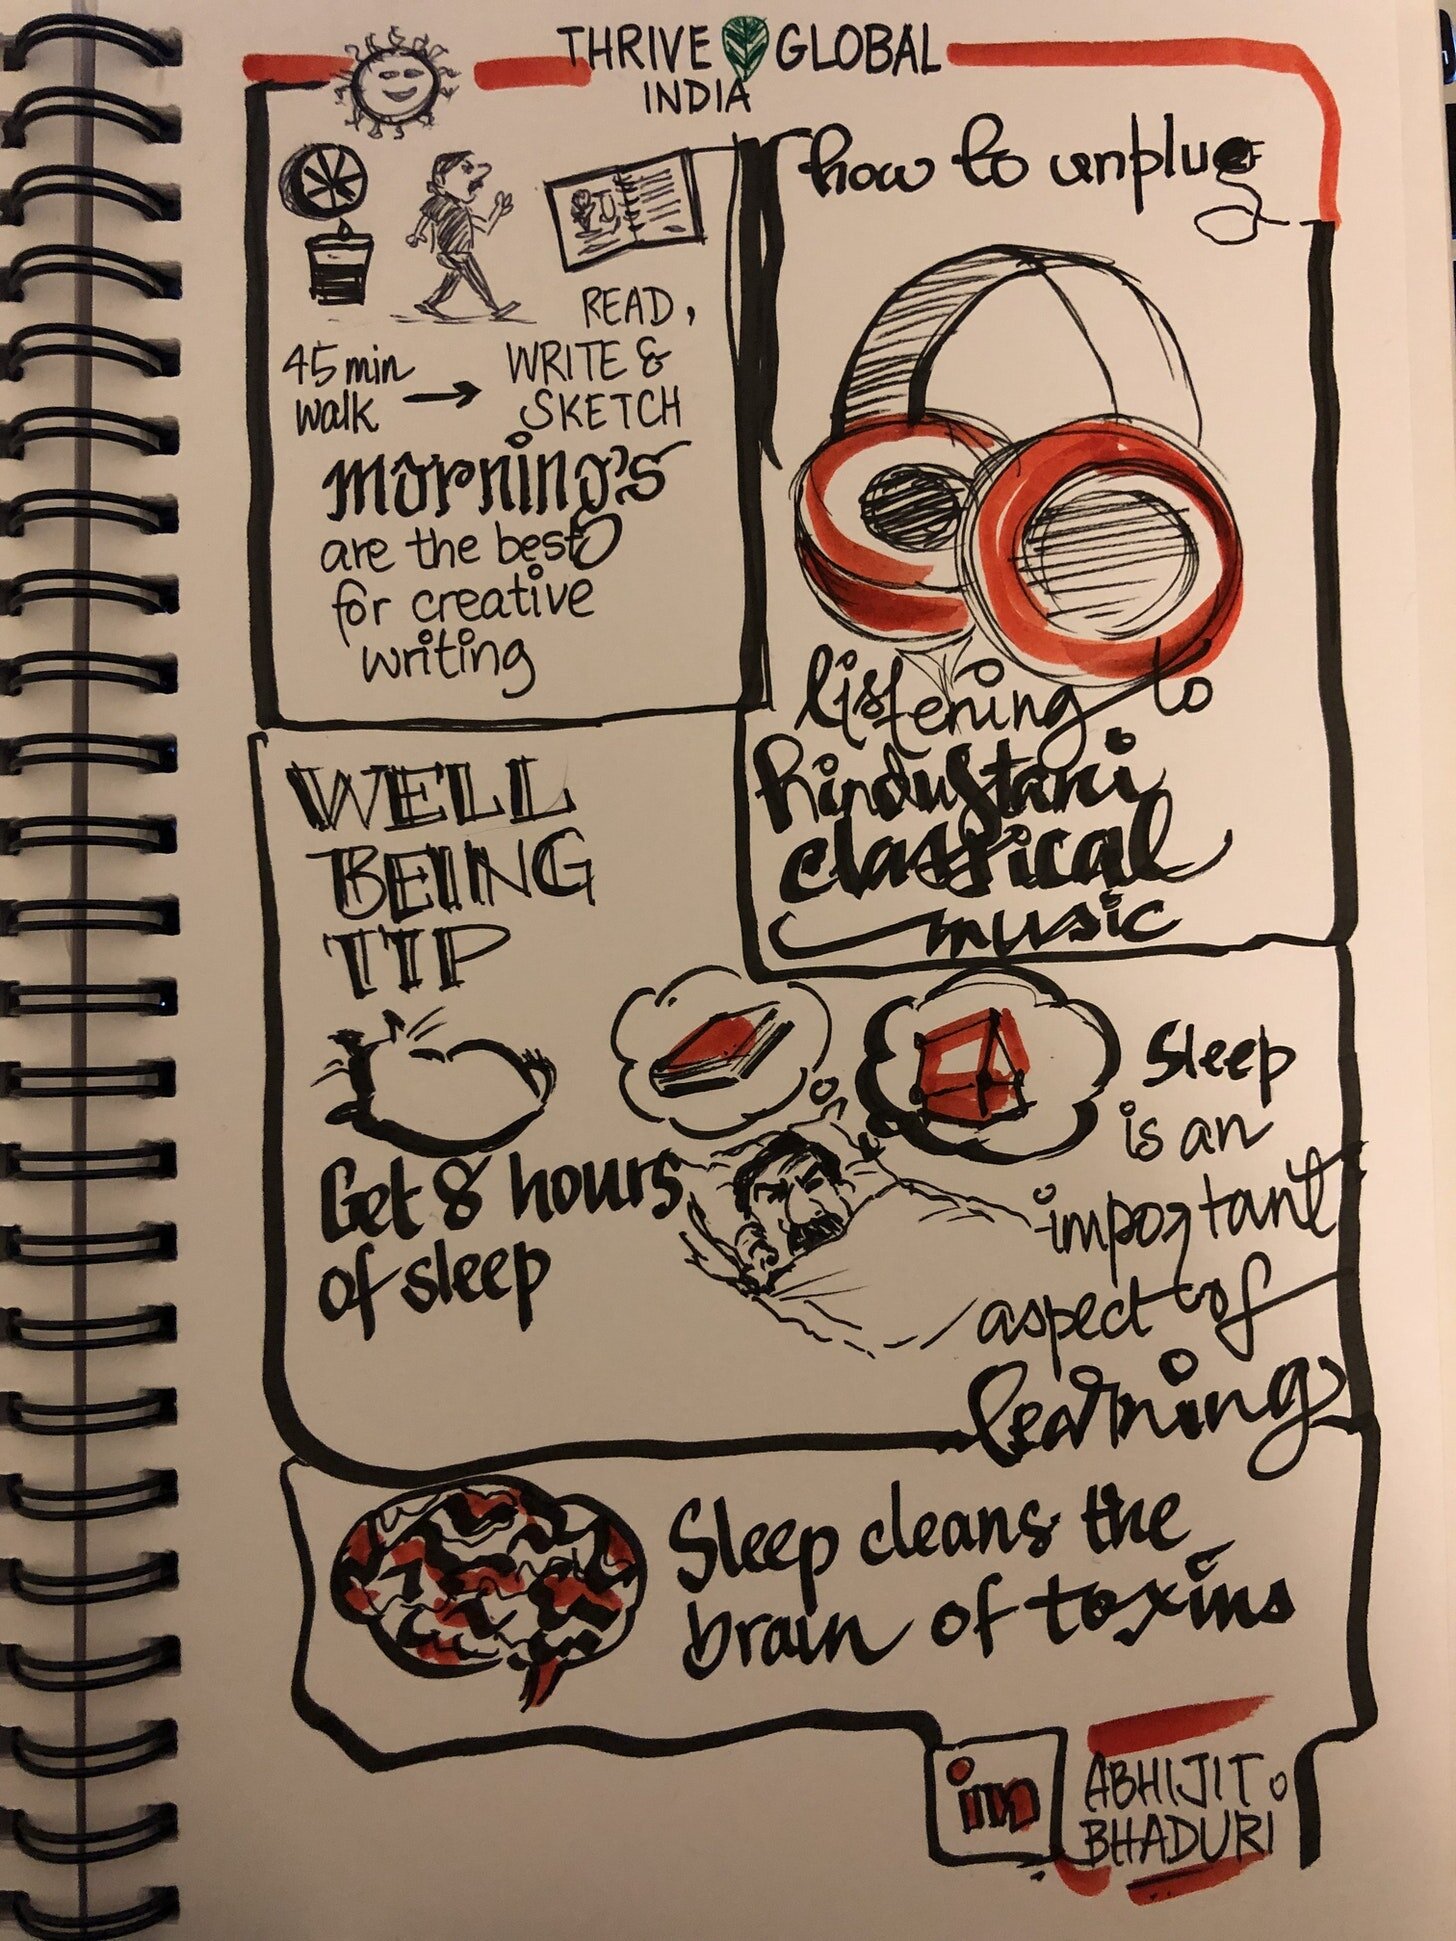 THRIVE GLOBAL
INDIA
45 min
walk →
READ,
WRITE &
SKETCH
morning's
are the best
for creative
writing
how to unplug
listening to
hindustani
classical
music
WELL
BEING
TIP
Get 8 hours
of sleep
Sleep
is an
important
aspect of
learning
Sleep cleans the
brain of toxins
in
ABHIJIT
BHADURI